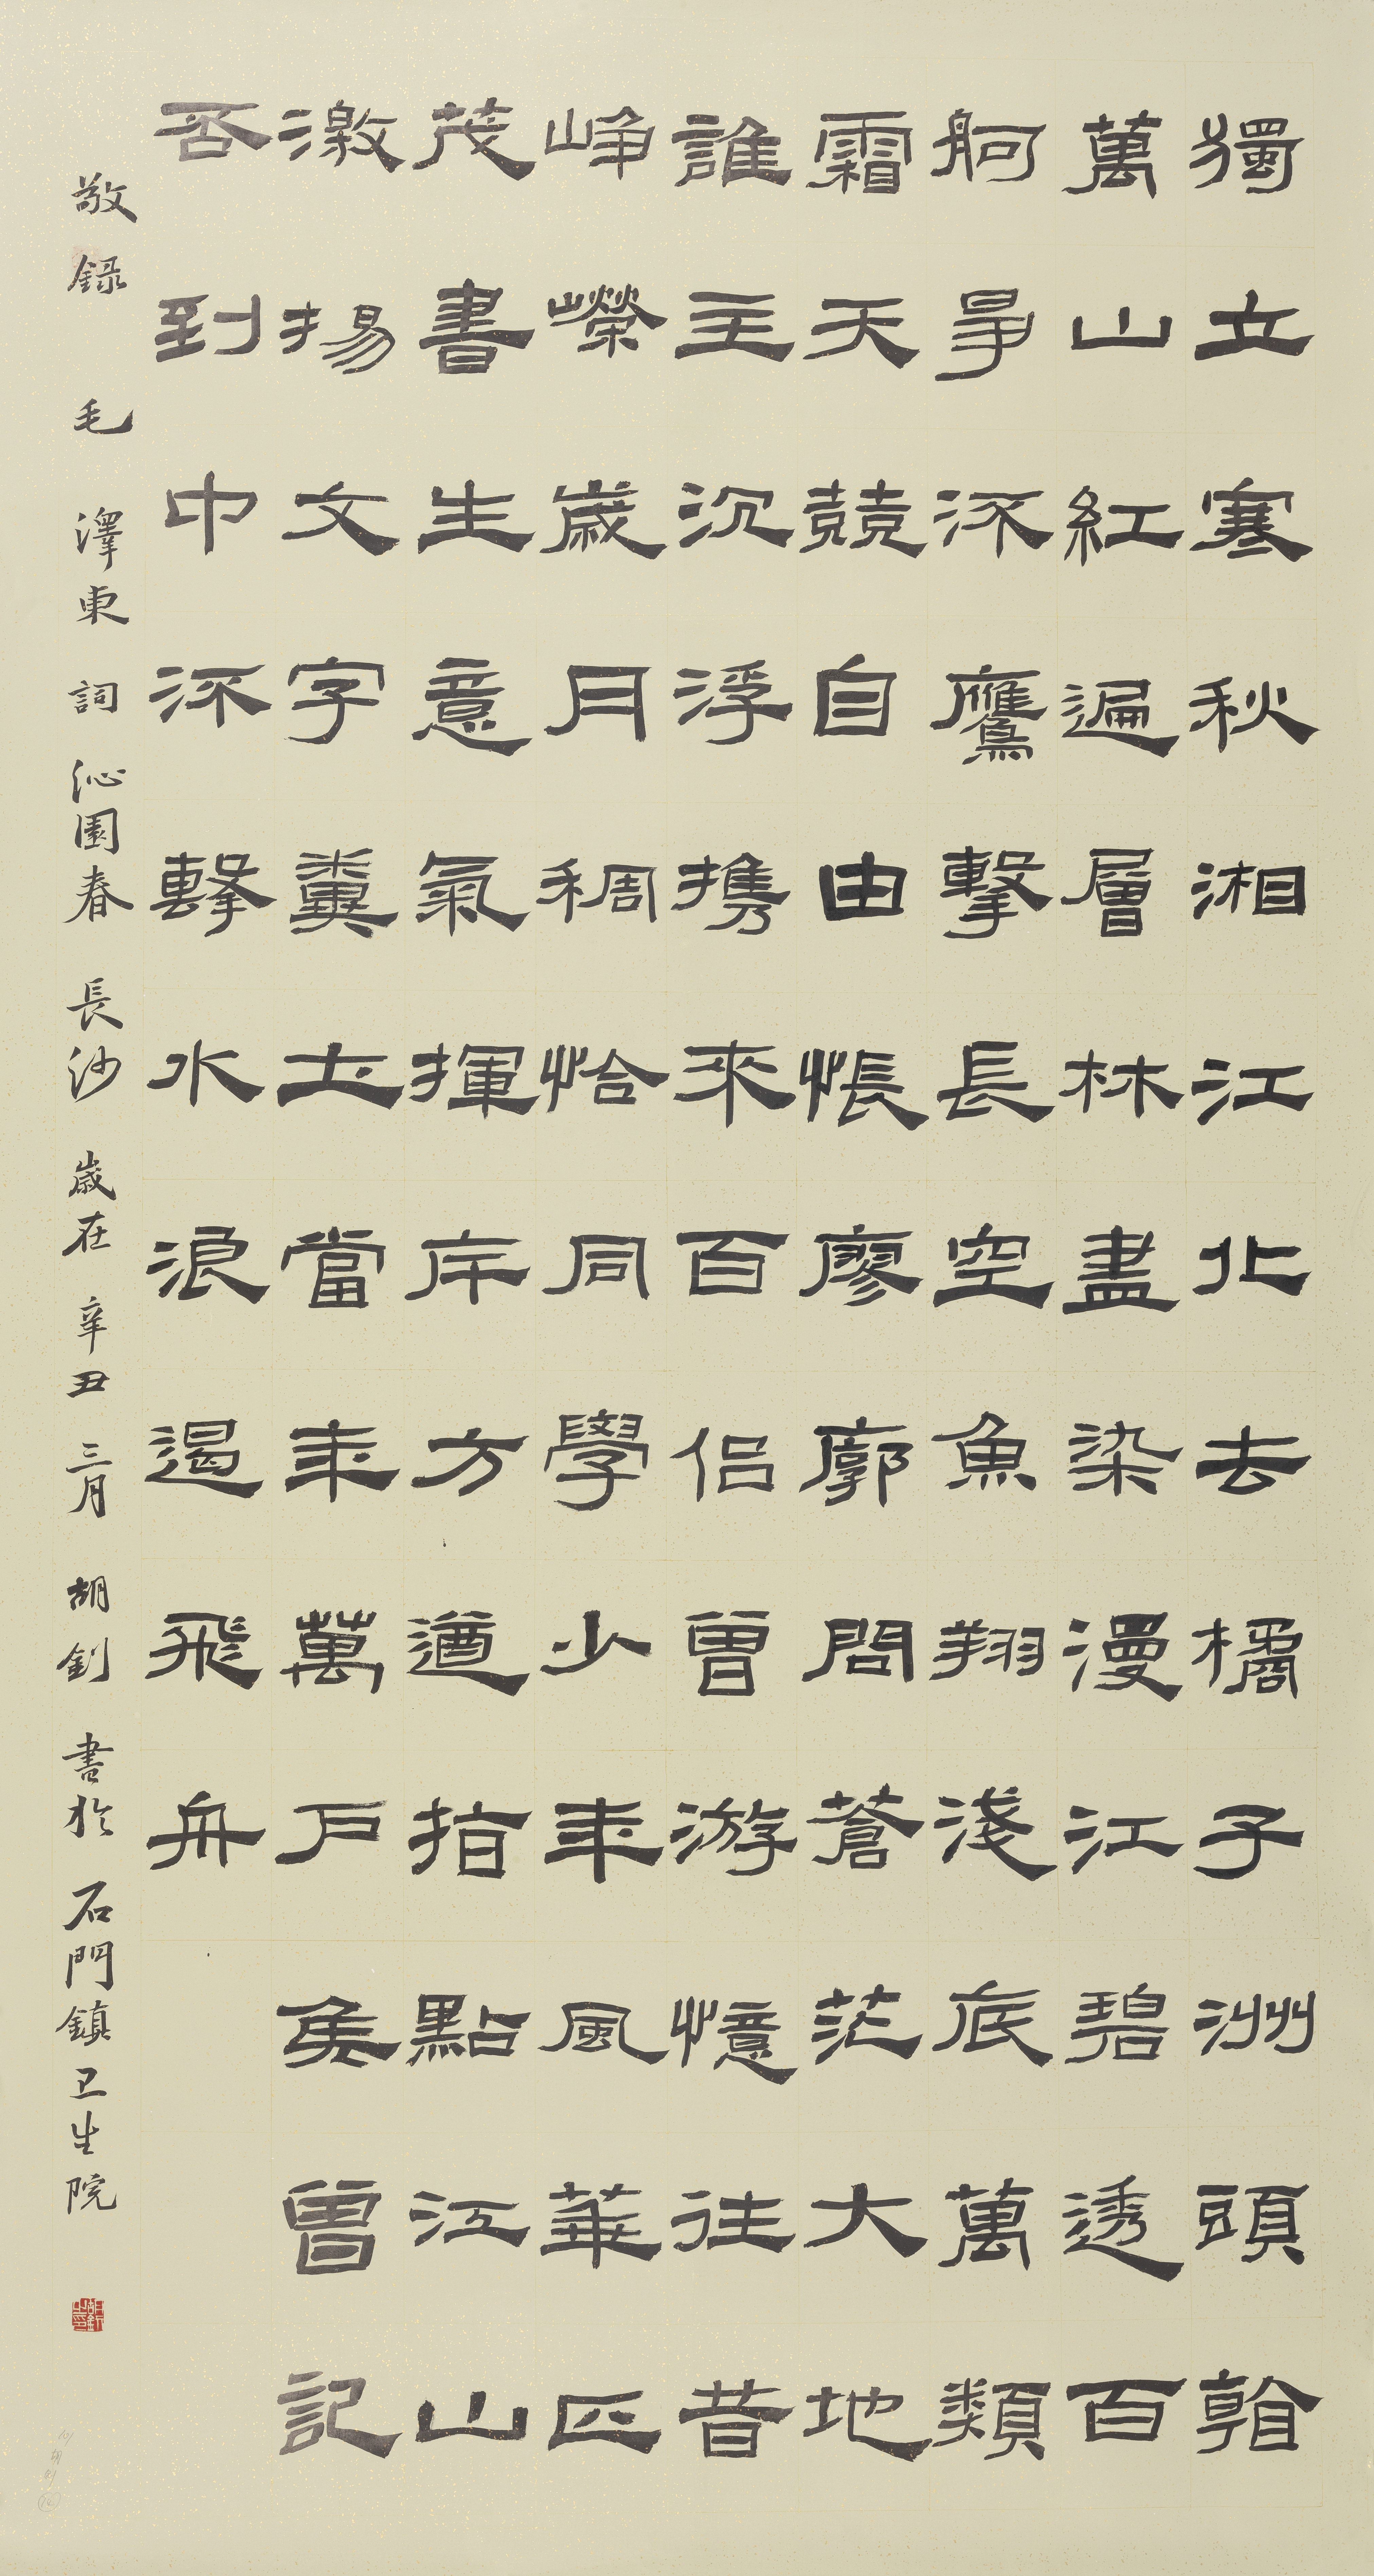 獨立寒秋湘江北去橘子洲頭看
萬山紅遍層林盡染漫江碧透百
舸爭流鷹擊長空魚翔淺底萬類
霜天競自由悵廖廓問蒼茫大地
誰主沉浮携來百侶曾游憶往昔
崢嶸歲月稠恰同學少年風華正
茂書生意氣揮斥方遒指點江山
激揚文字糞土當年萬戶侯曾記
否到中流擊水浪遏飛舟
敬錄毛澤東詞沁園春長沙歲在辛丑三月胡釗書於石門鎮卫生院